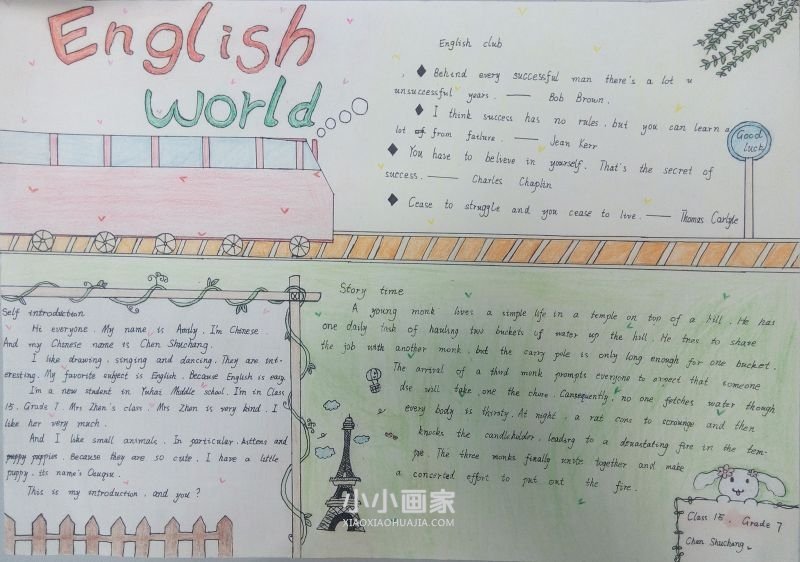 English
World
English club
◆ Behind every successful man there's a lot u
unsuccessful years. — Bob Brown.
◆ I think success has no rules. but you can learn a
lot of from failure. — Jean Kerr
◆ You have to believe in yourself. That's the secret of
success. — Charles Chaplin
◆ Cease to struggle and you cease to live. — Thomas Carlyle
Good
luck
Self introduction
Hi everyone. My name is Amily. I'm Chinese.
And my Chinese name is Chen Shuchang.
I like drawing. singing and dancing. They are int-
eresting. My favorite subject is English. Because English is easy.
I'm a new student in Yuhai Middle school. I'm in Class
15. Grade 7. Mrs Zhen's class. Mrs Zhen is very kind. I
like her very much.
And I like small animals. In particular. kittens and
puppy puppies. Because they are so cute. I have a little
puppy. its name's
This is my introduction. and you?
Story time
A young monk lives a simple life in a temple on top of a hill. He has
one daily task of hauling two buckets of water up the hill. He tries to share
the job with another monk. but the carry pole is only long enough for one bucket.
The arrival of a third monk prompts everyone to expect that someone
else will take one the chore. Consequently. no one fetches water though
every body is thirsty. At night. a rat coms to scrounge and then
knocks the candleholder. leading to a devastating fire in the tem-
ple. The three monks finally unite together and make
a concerted effort to put out the fire.
Class 15. Grade 7
Chen Shuchang.
小小画家
XIAOXIAOHUAJIA.COM